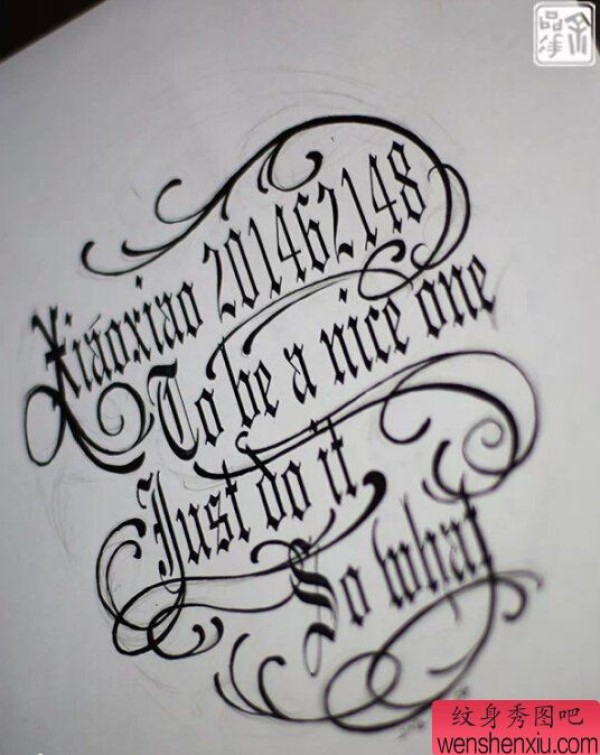 Xiaoxiao 201462148
To be a nice one
Just do it
So what
纹身秀图吧
wenshenxiu.com